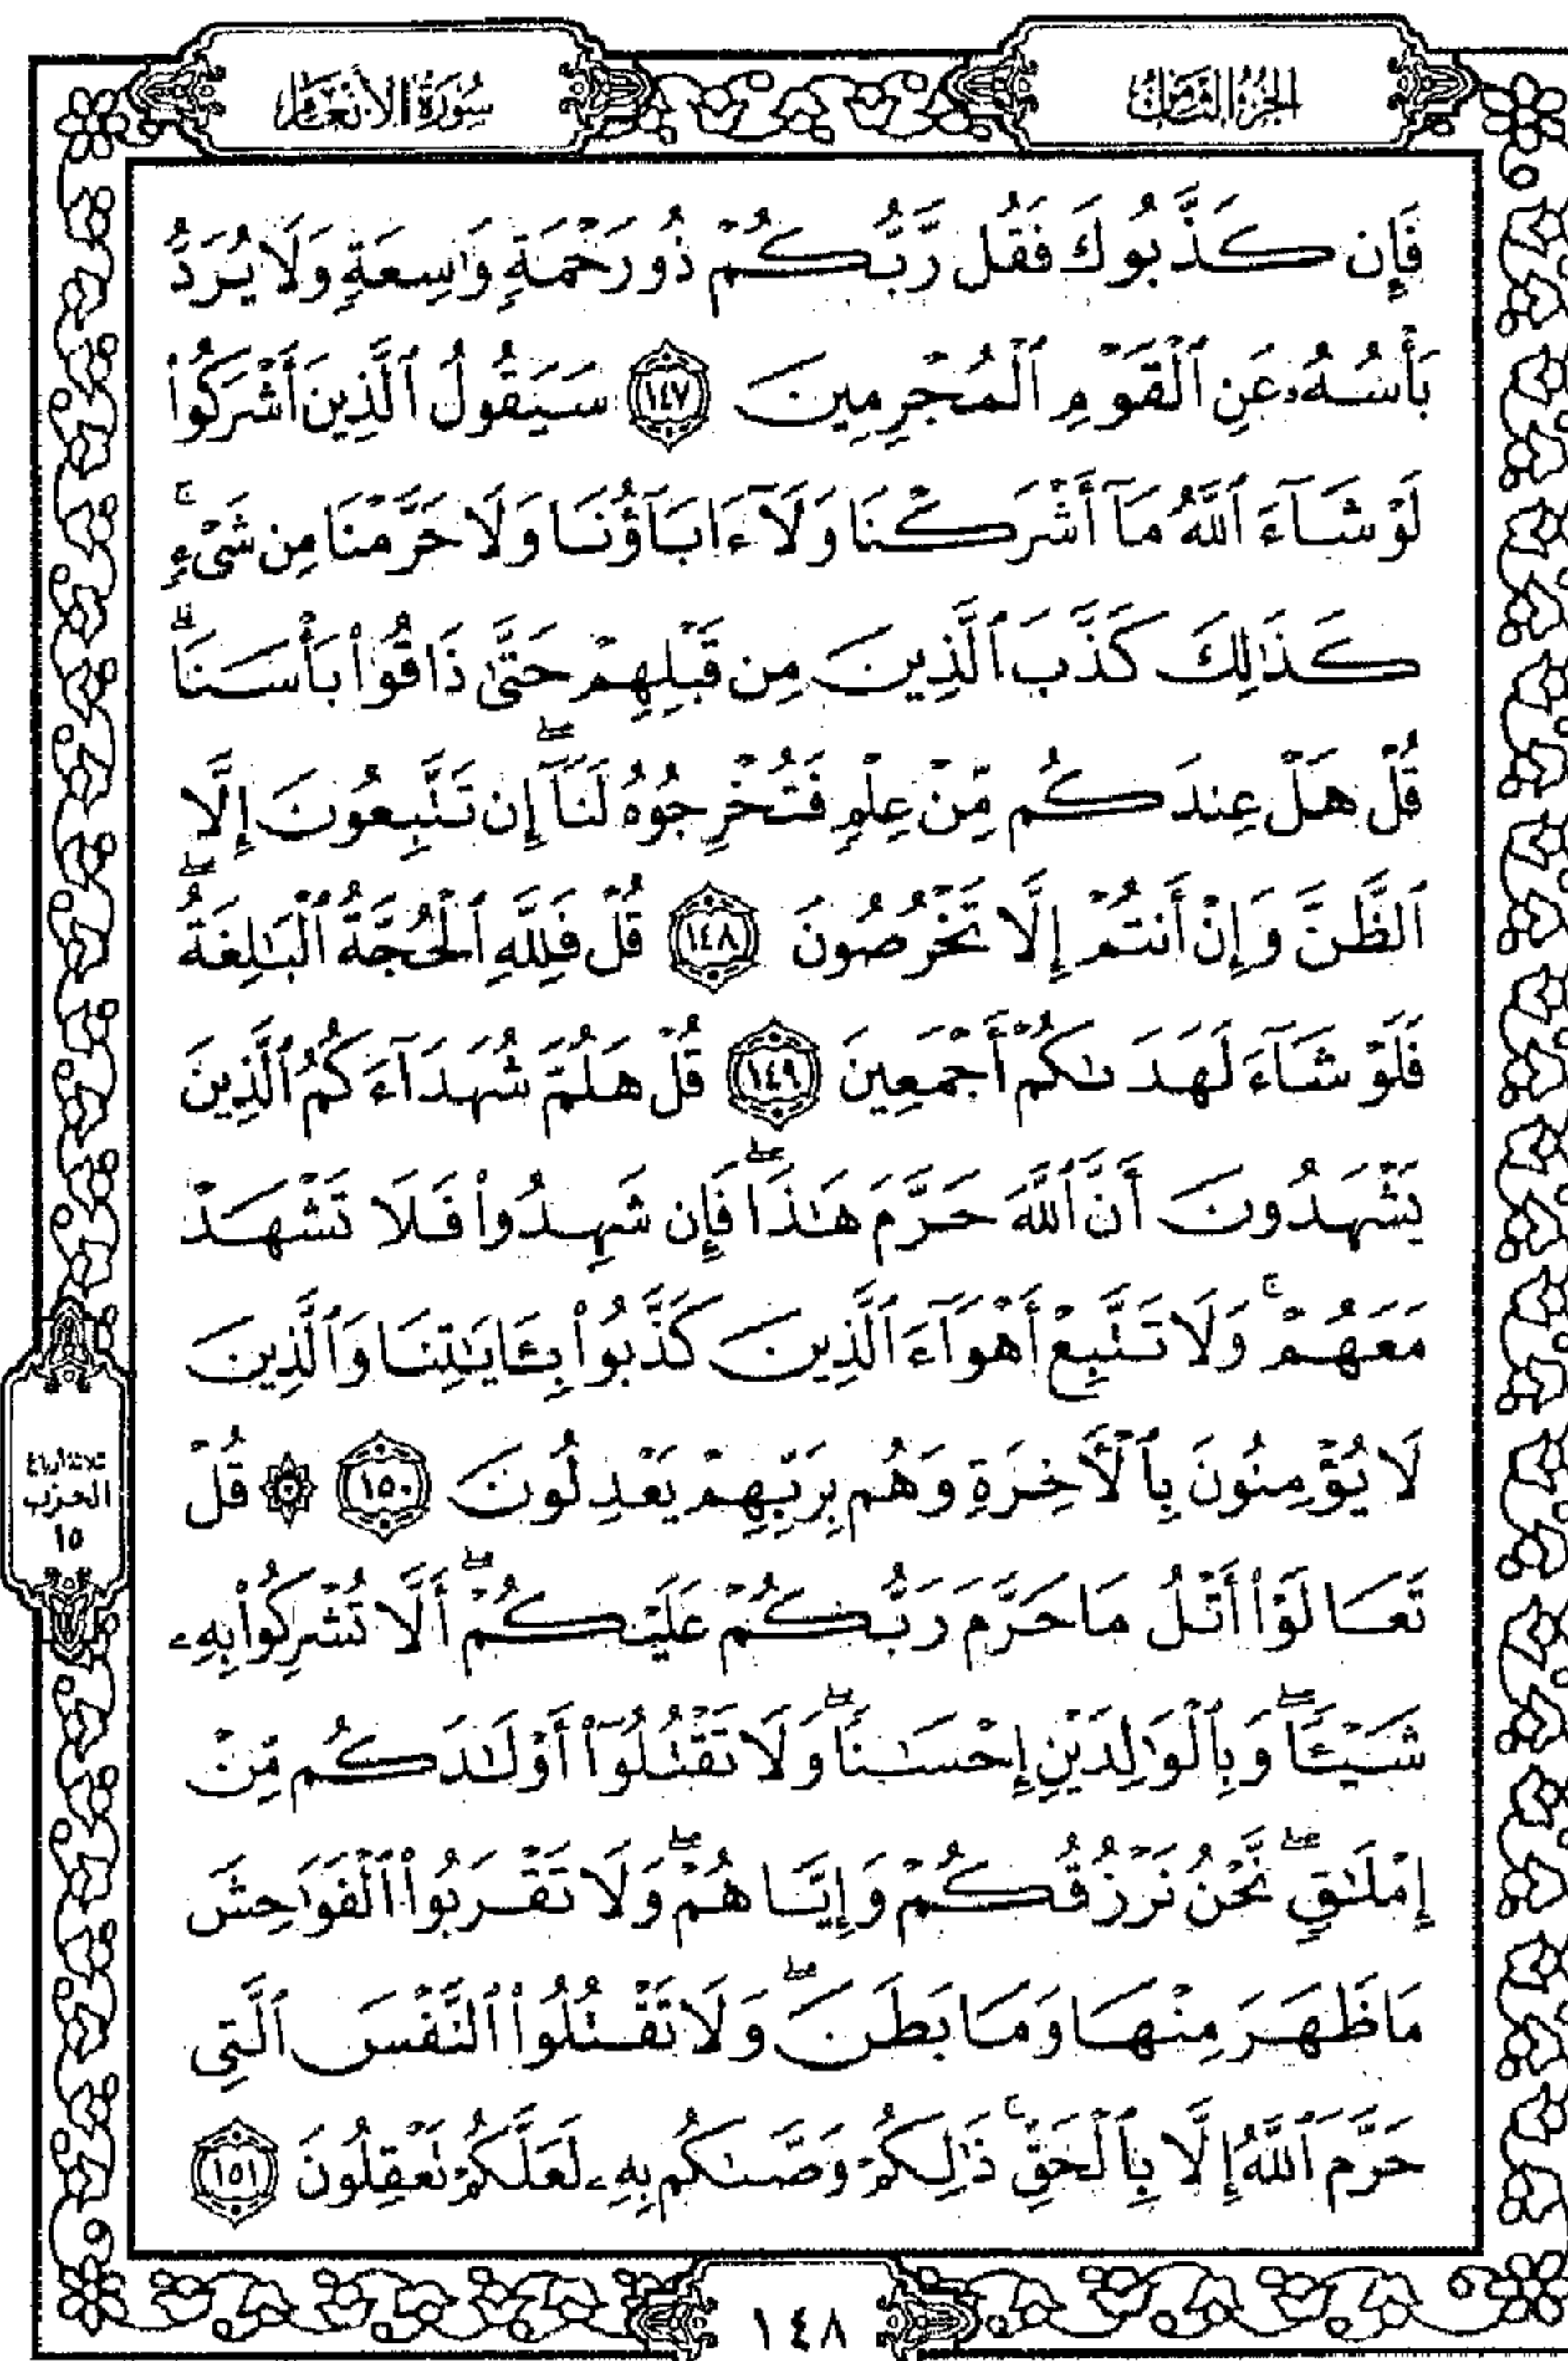 الجزء الثامن
سورة الأنعام
فَإِن كَذَّبُوكَ فَقُل رَّبُّكُمْ ذُو رَحْمَةٍ وَٰسِعَةٍ وَلَا يُرَدُّ
بَأْسُهُۥ عَنِ ٱلْقَوْمِ ٱلْمُجْرِمِينَ ١٤٧ سَيَقُولُ ٱلَّذِينَ أَشْرَكُوا۟
لَوْ شَآءَ ٱللَّهُ مَآ أَشْرَكْنَا وَلَآ ءَابَآؤُنَا وَلَا حَرَّمْنَا مِن شَىْءٍ ۚ
كَذَٰلِكَ كَذَّبَ ٱلَّذِينَ مِن قَبْلِهِمْ حَتَّىٰ ذَاقُوا۟ بَأْسَنَا ۗ
قُلْ هَلْ عِندَكُم مِّنْ عِلْمٍ فَتُخْرِجُوهُ لَنَآ ۖ إِن تَتَّبِعُونَ إِلَّا
ٱلظَّنَّ وَإِنْ أَنتُمْ إِلَّا تَخْرُصُونَ ١٤٨ قُلْ فَلِلَّهِ ٱلْحُجَّةُ ٱلْبَٰلِغَةُ ۖ
فَلَوْ شَآءَ لَهَدَىٰكُمْ أَجْمَعِينَ ١٤٩ قُلْ هَلُمَّ شُهَدَآءَكُمُ ٱلَّذِينَ
يَشْهَدُونَ أَنَّ ٱللَّهَ حَرَّمَ هَٰذَا ۖ فَإِن شَهِدُوا۟ فَلَا تَشْهَدْ
مَعَهُمْ ۚ وَلَا تَتَّبِعْ أَهْوَآءَ ٱلَّذِينَ كَذَّبُوا۟ بِـَٔايَٰتِنَا وَٱلَّذِينَ
لَا يُؤْمِنُونَ بِٱلْـَٔاخِرَةِ وَهُم بِرَبِّهِمْ يَعْدِلُونَ ١٥٠ ۞ قُلْ
ثلاثة أرباع
الحزب
١٥
تَعَالَوْا۟ أَتْلُ مَا حَرَّمَ رَبُّكُمْ عَلَيْكُمْ ۖ أَلَّا تُشْرِكُوا۟ بِهِۦ
شَيْـًٔا ۖ وَبِٱلْوَٰلِدَيْنِ إِحْسَٰنًا ۖ وَلَا تَقْتُلُوٓا۟ أَوْلَٰدَكُم مِّنْ
إِمْلَٰقٍ ۖ نَّحْنُ نَرْزُقُكُمْ وَإِيَّاهُمْ ۖ وَلَا تَقْرَبُوا۟ ٱلْفَوَٰحِشَ
مَا ظَهَرَ مِنْهَا وَمَا بَطَنَ ۖ وَلَا تَقْتُلُوا۟ ٱلنَّفْسَ ٱلَّتِى
حَرَّمَ ٱللَّهُ إِلَّا بِٱلْحَقِّ ۚ ذَٰلِكُمْ وَصَّىٰكُم بِهِۦ لَعَلَّكُمْ تَعْقِلُونَ ١٥١
١٤٨